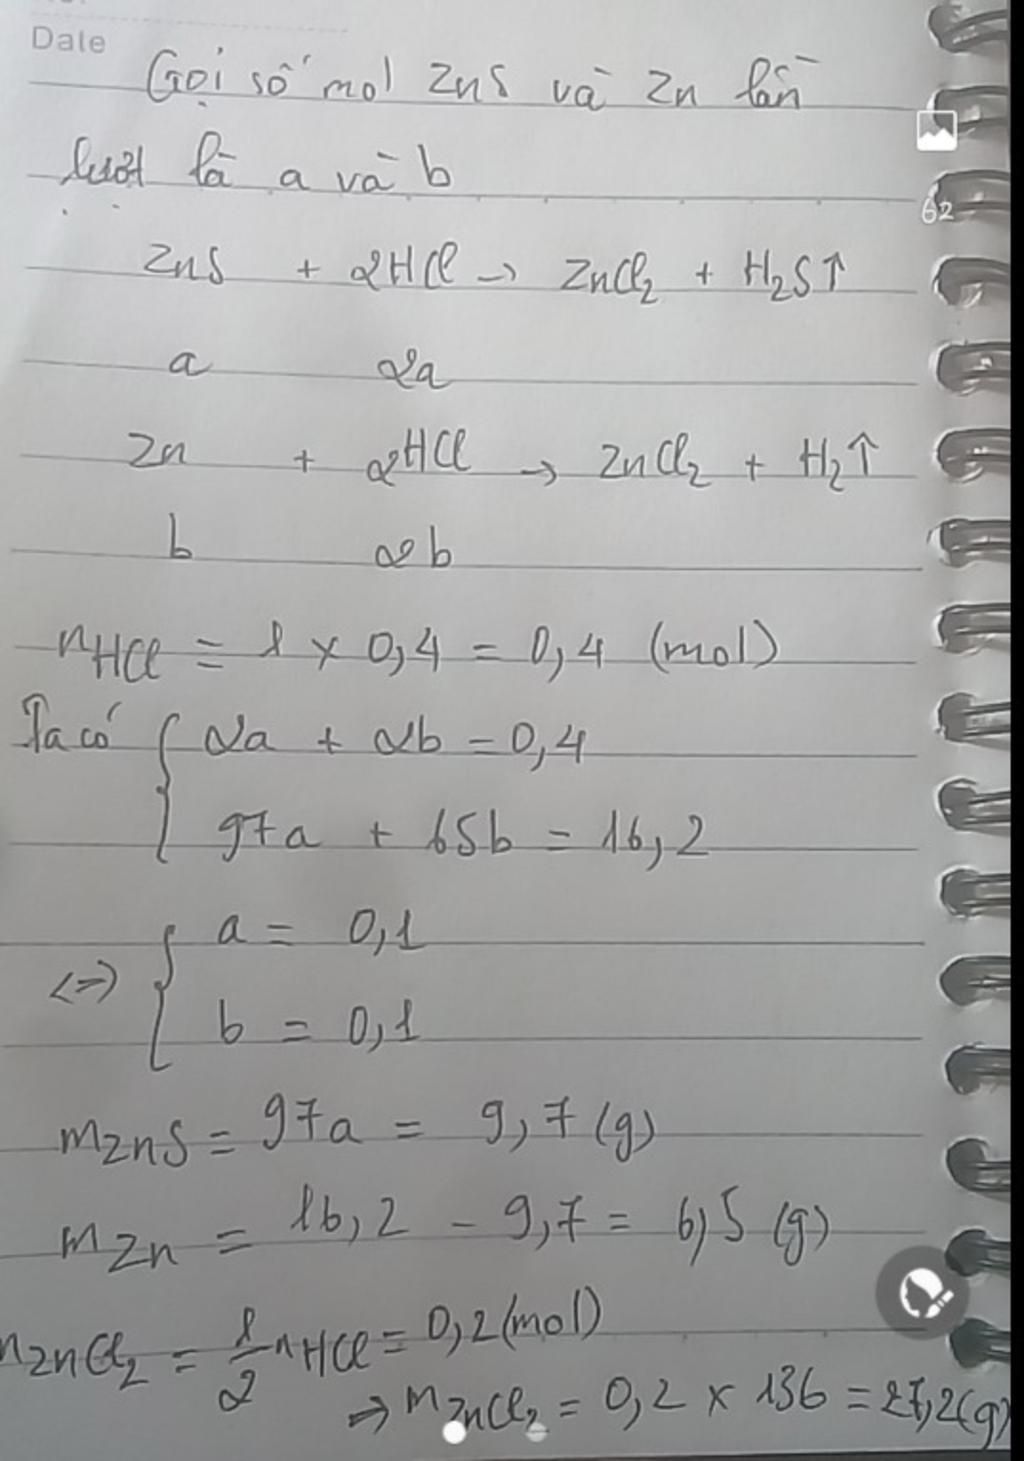 Date
Gọi số mol ZnS và Zn lần
lượt là a và b
62
ZnS + 2HCl → ZnCl₂ + H₂S↑
a 2a
Zn + 2HCl → ZnCl₂ + H₂↑
b 2b
nHCl = 1 × 0,4 = 0,4 (mol)
Ta có { 2a + 2b = 0,4
97a + 65b = 16,2
<=> { a = 0,1
b = 0,1
mZnS = 97a = 9,7 (g)
mZn = 16,2 - 9,7 = 6,5 (g)
nZnCl₂ = 1/2 nHCl = 0,2 (mol)
=> mZnCl₂ = 0,2 × 136 = 27,2 (g)